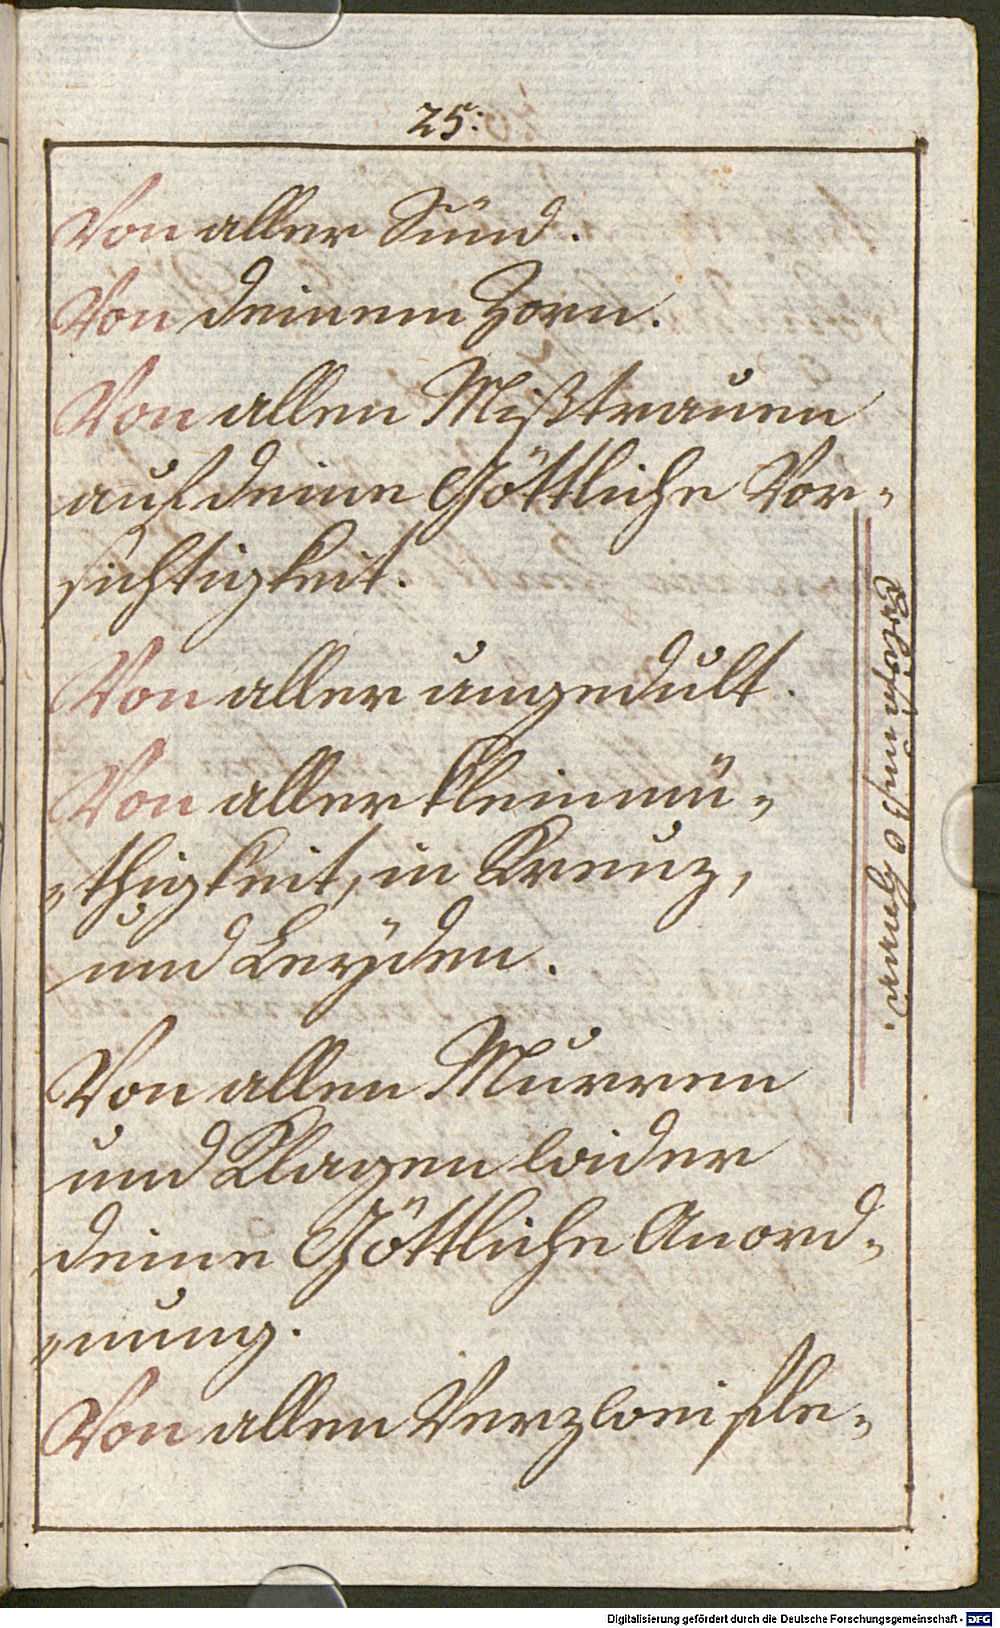 25:
Von aller Sünd.
Von deinem Zorn.
Von allen Mißtrauen
auf deine Göttliche Vor-
sichtigkeit.
Von aller ungedult.
Von aller kleinmü-
thigkeit, in Kreuz,
und Leÿden.
Von allen Murren
und Klagen wider
deine Göttliche Anord-
nung.
Von allen Verzweifle-
Erlöse uns o Herr.
Digitalisierung gefördert durch die Deutsche Forschungsgemeinschaft - DFG